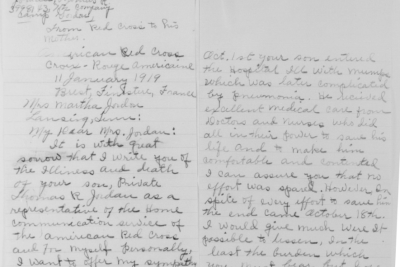 Thomas R.
Company
Jordan
From Red Cross to Pvt
Mother.
American Red Cross
Croix-Rouge Americaine
11 January 1919
Brest, Finistere, France
Mrs Martha Jordan
Lansing, Iowa:
My Dear Mrs. Jordan:
It is with great
sorrow that I write you of
the Illness and death
of your son, Private
Thomas R. Jordan as a
representative of the Home
Communication service of
the American Red Cross
and for myself personally,
I want to offer my sympathy
Oct. 1st your son entered
the Hospital Ill with
which was later complicated
by Pneumonia. He received
excellent Medical care from
Doctors and Nurses who did
all in their power to save his
life and to make him
comfortable and contented
I can assure you that no
effort was spared. However, In
spite of every effort to save him
the end came October 18th.
I would give much were It
possible to lessen, In the
least the burden which
you must bear but I